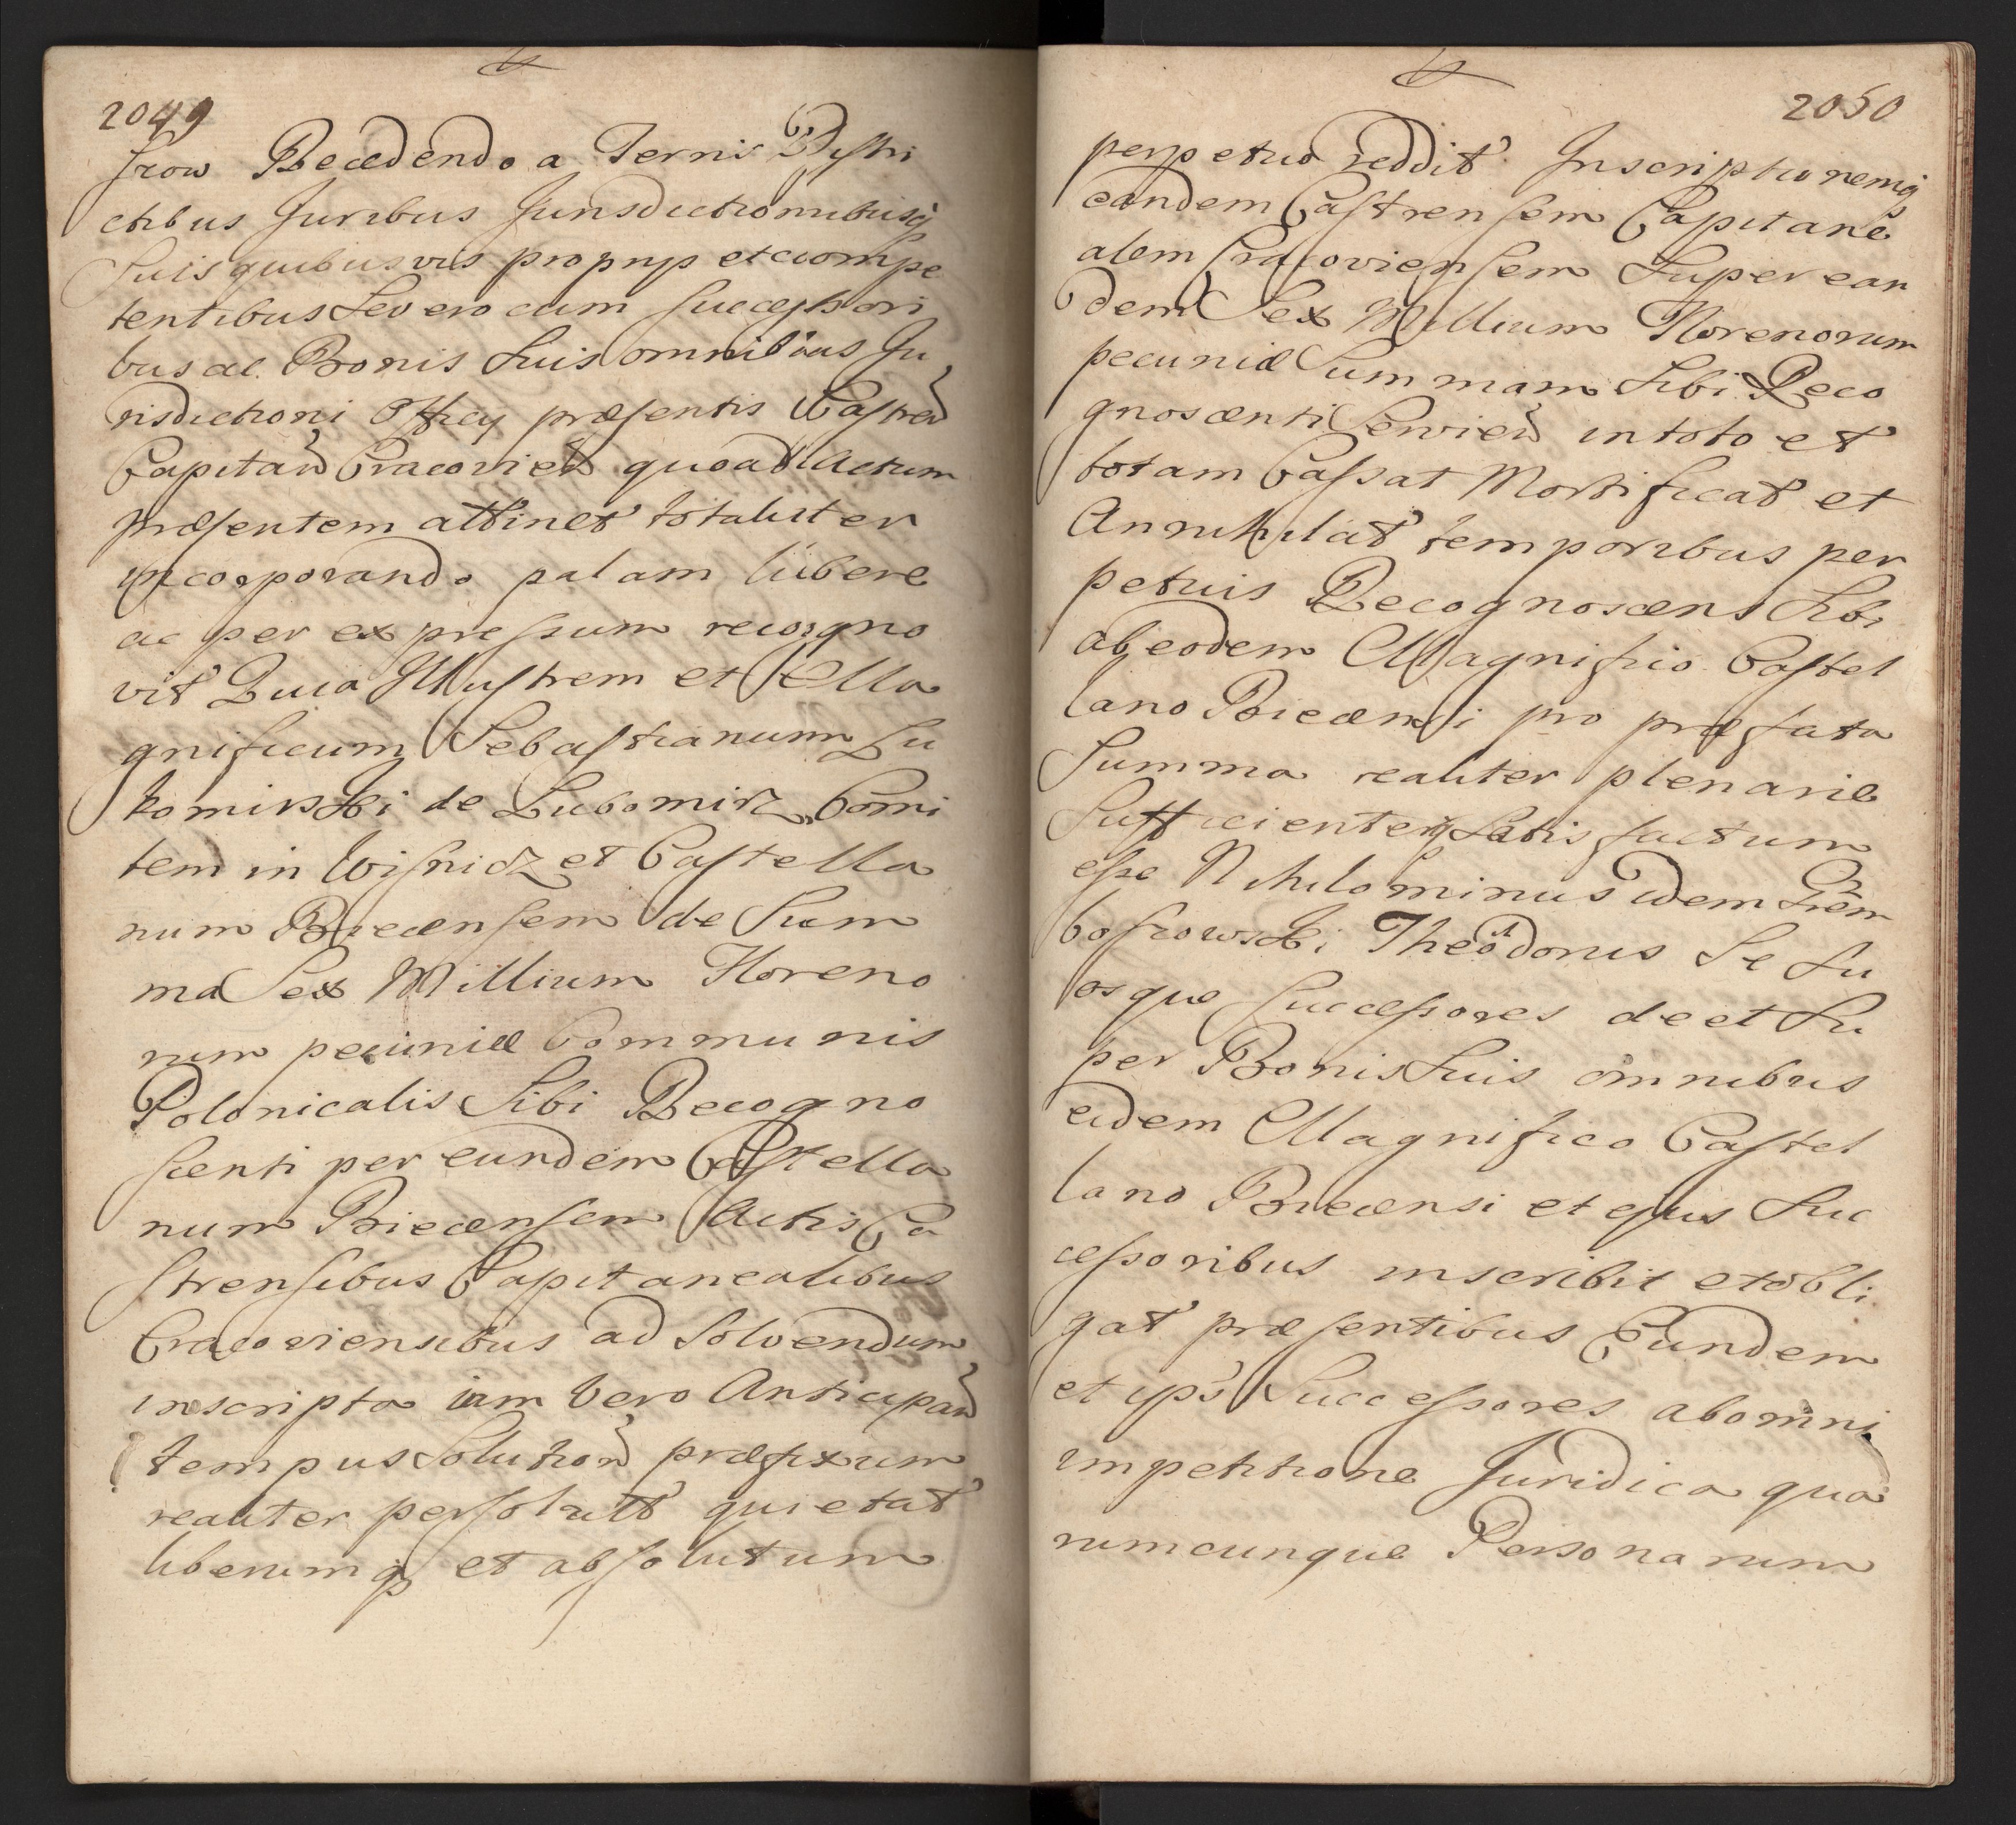 2049
srow Recedendo a Terris Distri
ctibus Juribus Jurisdictionibusq
Suis quibusvis proprijs et compe
tentibus Se vero cum successori
bus ac Bonis Suis omnibus Ju
risdictioni Officij præsentis Castren
Capitan Cracovien quoad Actum
præsentem attinet totaliter
incorporando palam libere
ac per expressum recogno
vit Quia Illustrem et Ma
gnificum Sebastianum Lu
bomirski de Lubomirz Comi
tem in Wisnicz et Castella
num Biecensem de Sum
ma Sex Millium Floreno
rum pecuniæ Communis
Polonicalis Sibi Recogno
scenti per eundem Castella
num Biecensem Actis Ca
strensibus Capitanealibus
Cracoviensibus ad Solvendum
inscripta iam vero Anticipan
tempus Solution præfixum
realiter persolutt quietat
liberumq et absolutum
2050
perpetuo reddit Inscriptionemq
eandem Castrensem Capitane
alem Cracoviensem Super ean
dem Sex Millium Florenorum
pecuniæ Summam Sibi Reco
gnoscenti Servien in toto et
totam Cassat Mortificat et
Annihilat temporibus per
petuis Recognoscens Sibi
ab eodem Magnifico Castel
lano Biecensi pro præfata
Summa realiter plenarie
Sufficienterq Satisfactum
esse Nihilominus idem Trem
boszowski Theodorus Se Su
osque Successores de et Su
per Bonis Suis omnibus
eidem Magnifico Castel
lano Biecensi et ejus Suc
cessoribus inscribit et obli
gat præsentibus Eundem
et ips Successores ab omni
impetitione Juridica qua
rumcunque Personarum